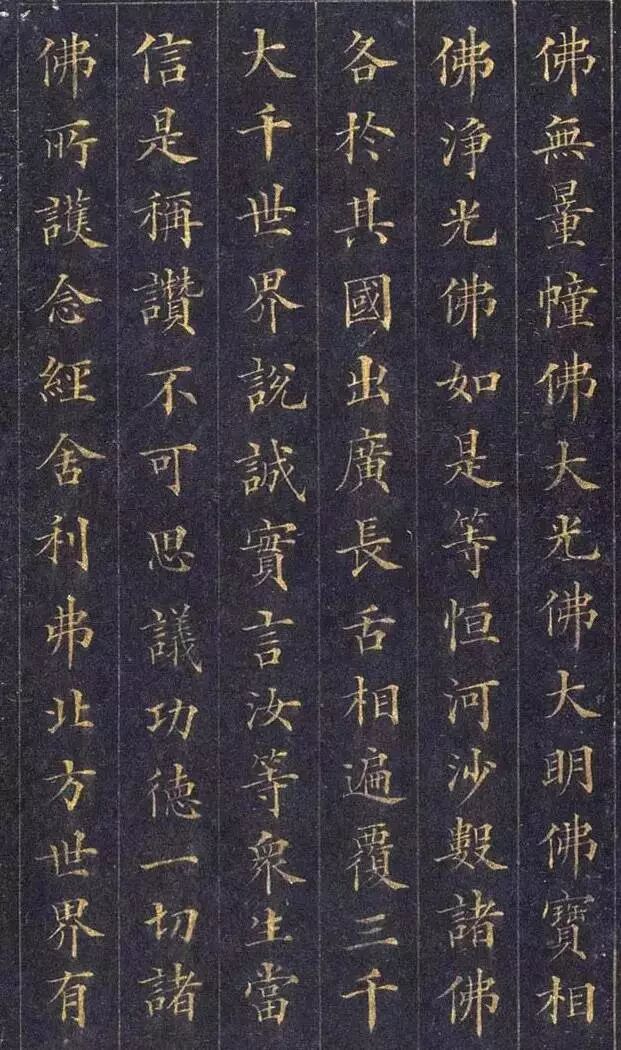 佛無量幢佛大光佛大明佛寶相
佛淨光佛如是等恒河沙數諸佛
各於其國出廣長舌相遍覆三千
大千世界說誠實言汝等衆生當
信是稱讚不可思議功德一切諸
佛所護念經舍利弗北方世界有